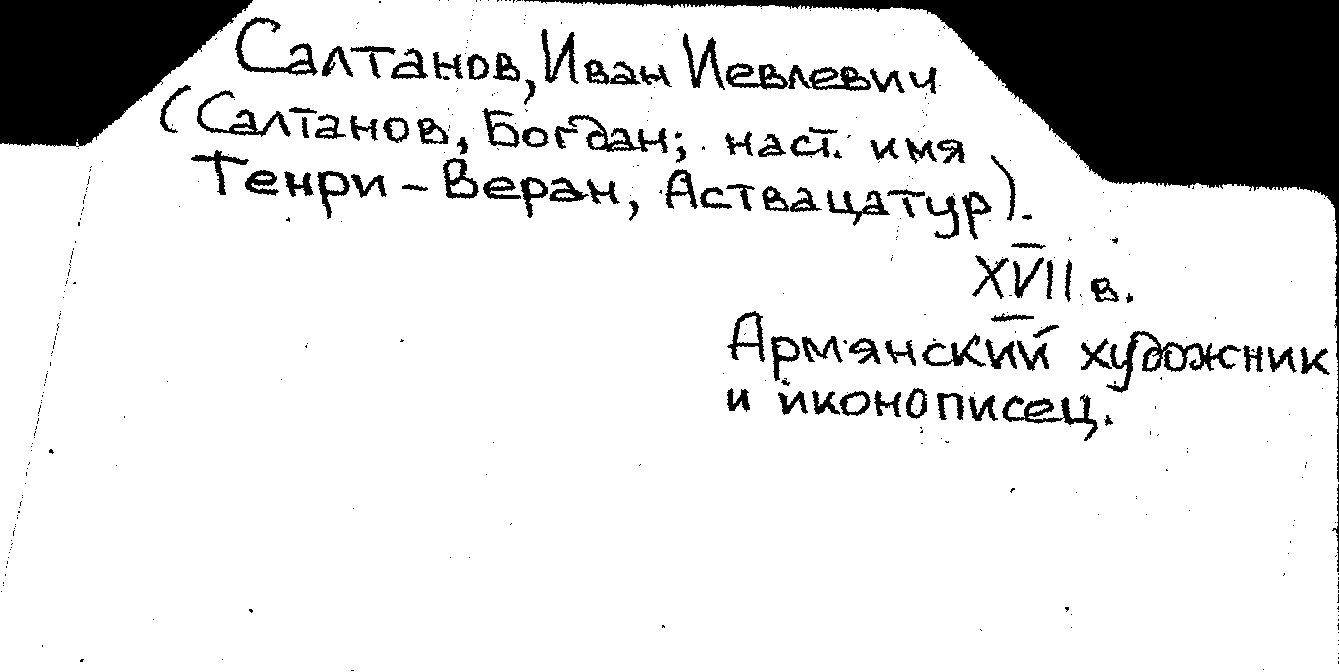 Салтанов, Иван Иевлевич
(Салтанов, Богдан; наст. имя
Тенри-Веран, Аствацатур).
XVII в.
Армянский художник
и иконописец.